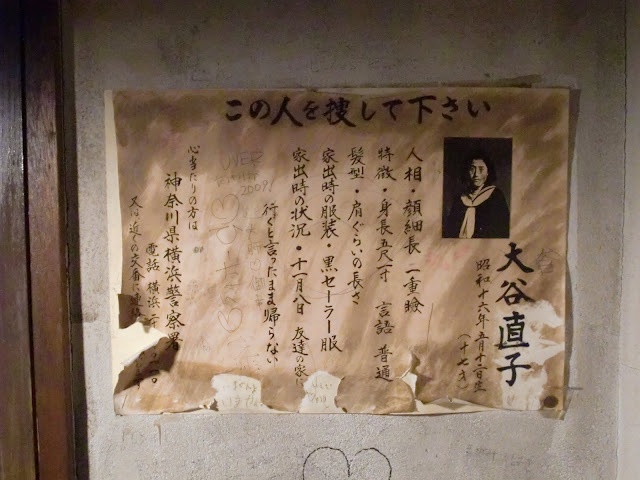 この人を捜して下さい
大谷直子
昭和十六年五月十二日生
(十七才)
人相・顔細長 一重瞼
特徴・身長五尺一寸 言語 普通
髪型・肩ぐらいの長さ
家出時の服装・黒セーラー服
家出時の状況・十一月八日 友達の家に
行くと言ったまま帰らない
心当たりの方は
神奈川県横浜警察署
電話 横浜
又は近くの交番に連
UVER
2009!